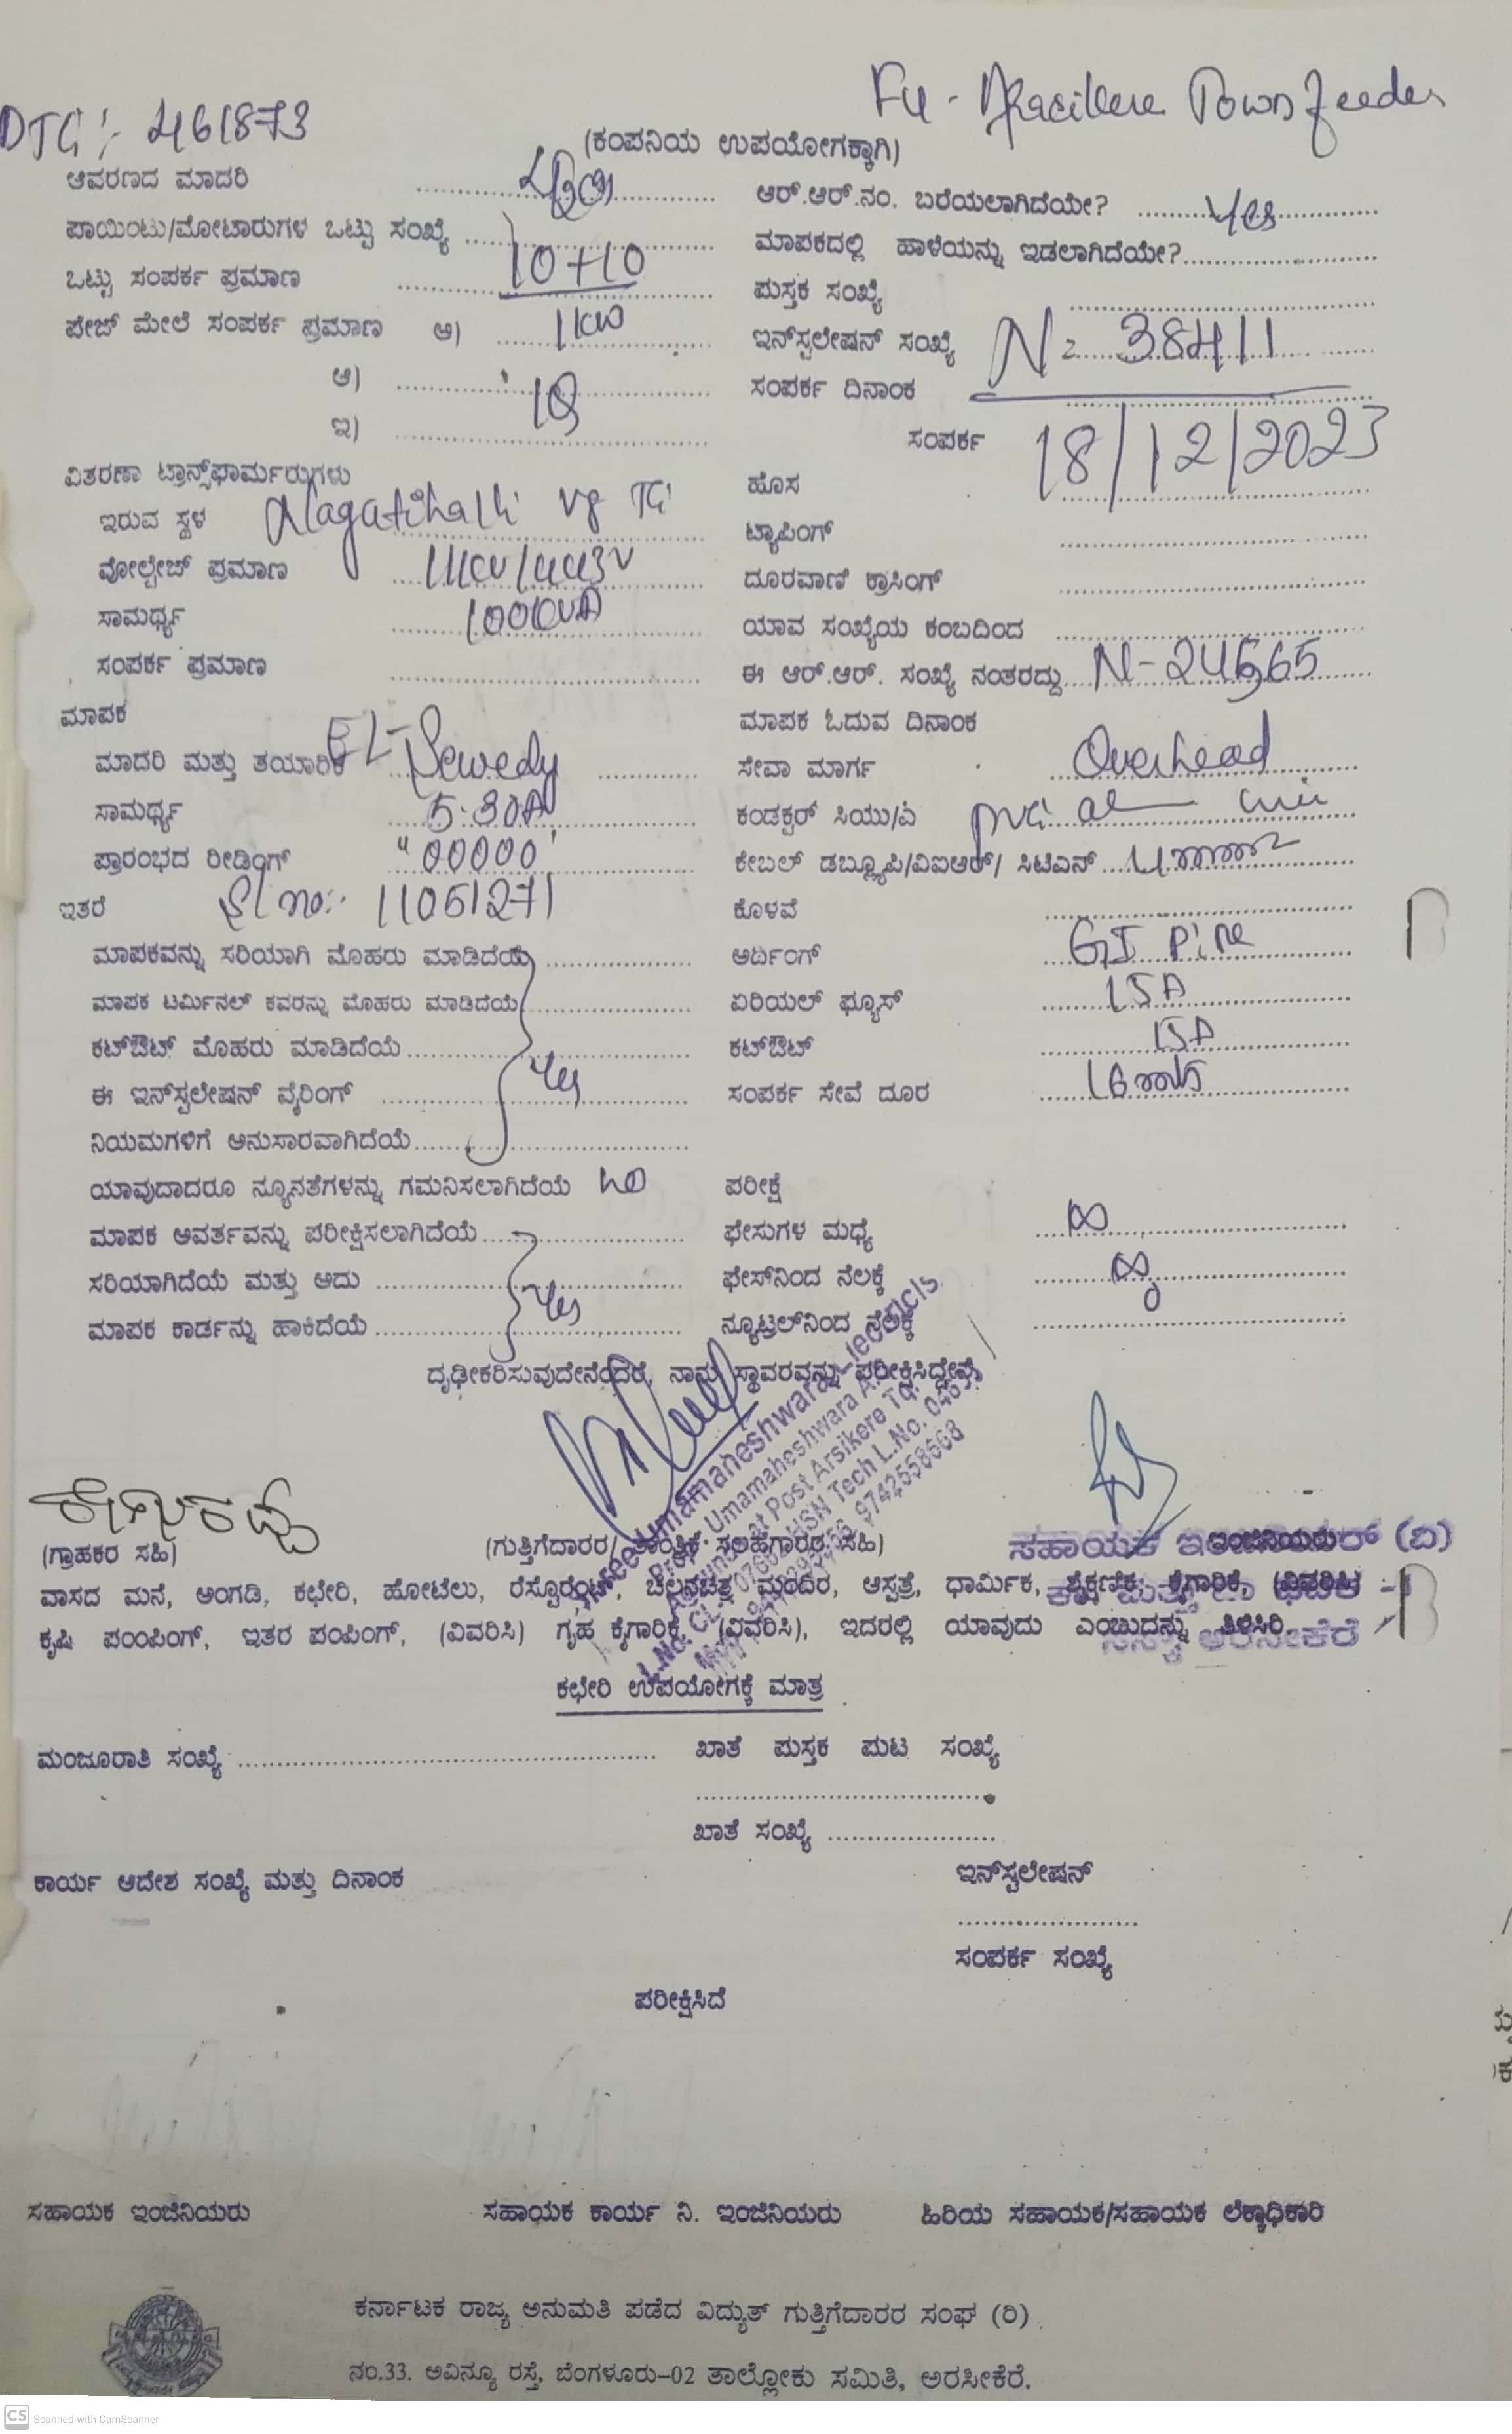 F4 - Arasikere Town feeder
DTC:- 461873
(ಕಂಪನಿಯ ಉಪಯೋಗಕ್ಕಾಗಿ)
ಆವರಣದ ಮಾದರಿ ....................
ಆರ್.ಆರ್.ನಂ. ಬರೆಯಲಾಗಿದೆಯೇ? ........ Yes
ಪಾಯಿಂಟು/ಮೋಟಾರುಗಳ ಒಟ್ಟು ಸಂಖ್ಯೆ ........ 10+10
ಮಾಪಕದಲ್ಲಿ ಹಾಳೆಯನ್ನು ಇಡಲಾಗಿದೆಯೇ?....................
ಒಟ್ಟು ಸಂಪರ್ಕ ಪ್ರಮಾಣ ....................
ಪುಸ್ತಕ ಸಂಖ್ಯೆ ....................
ಪೇಜ್ ಮೇಲೆ ಸಂಪರ್ಕ ಪ್ರಮಾಣ ಅ) ........ 1kw
ಇನ್‌ಸ್ಟಲೇಷನ್ ಸಂಖ್ಯೆ N= 38411
ಆ) ....................
ಸಂಪರ್ಕ ದಿನಾಂಕ ....................
ಇ) ....................
ಸಂಪರ್ಕ 18/12/2023
ವಿತರಣಾ ಟ್ರಾನ್ಸ್‌ಫಾರ್ಮರುಗಳು
ಹೊಸ
ಇರುವ ಸ್ಥಳ Nagatihalli vg TC
ಟ್ಯಾಪಿಂಗ್ ....................
ವೋಲ್ಟೇಜ್ ಪ್ರಮಾಣ .... 11kv/433v
ದೂರವಾಣಿ ಕ್ರಾಸಿಂಗ್ ....................
ಸಾಮರ್ಥ್ಯ ........ 100KVA
ಯಾವ ಸಂಖ್ಯೆಯ ಕಂಬದಿಂದ ....................
ಸಂಪರ್ಕ ಪ್ರಮಾಣ ....................
ಈ ಆರ್.ಆರ್. ಸಂಖ್ಯೆ ನಂತರದ್ದು.... N-24565
ಮಾಪಕ
ಮಾಪಕ ಓದುವ ದಿನಾಂಕ
ಮಾದರಿ ಮತ್ತು ತಯಾರಿಕೆ EL-Sewedy ............
ಸೇವಾ ಮಾರ್ಗ .... Overhead
ಸಾಮರ್ಥ್ಯ .... 5-30A
ಕಂಡಕ್ಟರ್ ಸಿಯು/ಎ pvc al
ಪ್ರಾರಂಭದ ರೀಡಿಂಗ್ "00000"
ಕೇಬಲ್ ಡಬ್ಲ್ಯೂಪಿ/ವಿಐಆರ್/ ಸಿಟಿಎಸ್ .... 4mm2
ಇತರೆ Sl no:- 11061271
ಕೊಳವೆ ....................
ಮಾಪಕವನ್ನು ಸರಿಯಾಗಿ ಮೊಹರು ಮಾಡಿದೆಯೆ ....................
ಅರ್ದಿಂಗ್ .... GI Pipe
ಮಾಪಕ ಟರ್ಮಿನಲ್ ಕವರನ್ನು ಮೊಹರು ಮಾಡಿದೆಯೆ....................
ಏರಿಯಲ್ ಫ್ಯೂಸ್ ........ 15A
ಕಟ್‌ಔಟ್ ಮೊಹರು ಮಾಡಿದೆಯೆ....................
ಕಟ್‌ಔಟ್ ........ 15A
ಈ ಇನ್‌ಸ್ಟಲೇಷನ್ ವೈರಿಂಗ್ ............ Yes
ಸಂಪರ್ಕ ಸೇವೆ ದೂರ ........ 16mts
ನಿಯಮಗಳಿಗೆ ಅನುಸಾರವಾಗಿದೆಯೆ....................
ಯಾವುದಾದರೂ ನ್ಯೂನತೆಗಳನ್ನು ಗಮನಿಸಲಾಗಿದೆಯೆ no
ಪರೀಕ್ಷೆ
ಮಾಪಕ ಆವರ್ತವನ್ನು ಪರೀಕ್ಷಿಸಲಾಗಿದೆಯೆ....................
ಫೇಸುಗಳ ಮಧ್ಯೆ .... ∞
ಸರಿಯಾಗಿದೆಯೆ ಮತ್ತು ಅದು ............ Yes
ಫೇಸ್‌ನಿಂದ ನೆಲಕ್ಕೆ ........ ∞
ಮಾಪಕ ಕಾರ್ಡನ್ನು ಹಾಕಿದೆಯೆ....................
ನ್ಯೂಟ್ರಲ್‌ನಿಂದ ನೆಲಕ್ಕೆ ....................
ದೃಢೀಕರಿಸುವುದೇನೆಂದರೆ, ನಾನು ಸ್ಥಾವರವನ್ನು ಪರೀಕ್ಷಿಸಿದ್ದೇನೆ.
(ಗ್ರಾಹಕರ ಸಹಿ)
(ಗುತ್ತಿಗೆದಾರರ/ ತಾಂತ್ರಿಕ ಸಲಹೆಗಾರರ ಸಹಿ)
ಸಹಾಯಕ ಇಂಜಿನಿಯರ್ (ವಿ)
ವಾಸದ ಮನೆ, ಅಂಗಡಿ, ಕಛೇರಿ, ಹೋಟೆಲು, ರೆಸ್ಟೊರೆಂಟ್, ಚಲನಚಿತ್ರ ಮಂದಿರ, ಆಸ್ಪತ್ರೆ, ಧಾರ್ಮಿಕ, ಶೈಕ್ಷಣಿಕ, ಕೈಗಾರಿಕೆ, (ವಿವರಿಸಿ)
ಕೃಷಿ ಪಂಂಪಿಂಗ್, ಇತರ ಪಂಪಿಂಗ್, (ವಿವರಿಸಿ) ಗೃಹ ಕೈಗಾರಿಕೆ, (ವಿವರಿಸಿ), ಇದರಲ್ಲಿ ಯಾವುದು ಎಂಬುದನ್ನು ತಿಳಿಸಿರಿ.
ಕಛೇರಿ ಉಪಯೋಗಕ್ಕೆ ಮಾತ್ರ
ಮಂಜೂರಾತಿ ಸಂಖ್ಯೆ ........................................
ಖಾತೆ ಪುಸ್ತಕ ಪುಟ ಸಂಖ್ಯೆ
........................................
ಖಾತೆ ಸಂಖ್ಯೆ ....................
ಕಾರ್ಯ ಆದೇಶ ಸಂಖ್ಯೆ ಮತ್ತು ದಿನಾಂಕ
ಇನ್‌ಸ್ಟಲೇಷನ್
....................
ಸಂಪರ್ಕ ಸಂಖ್ಯೆ
ಪರೀಕ್ಷಿಸಿದೆ
ಸಹಾಯಕ ಇಂಜಿನಿಯರು
ಸಹಾಯಕ ಕಾರ್ಯ ನಿ. ಇಂಜಿನಿಯರು
ಹಿರಿಯ ಸಹಾಯಕ/ಸಹಾಯಕ ಲೆಕ್ಕಾಧಿಕಾರಿ
ಕರ್ನಾಟಕ ರಾಜ್ಯ ಅನುಮತಿ ಪಡೆದ ವಿದ್ಯುತ್ ಗುತ್ತಿಗೆದಾರರ ಸಂಘ (ರಿ)
ನಂ.33. ಅವಿನ್ಯೂ ರಸ್ತೆ, ಬೆಂಗಳೂರು-02 ತಾಲ್ಲೋಕು ಸಮಿತಿ, ಅರಸೀಕೆರೆ.
CS Scanned with CamScanner